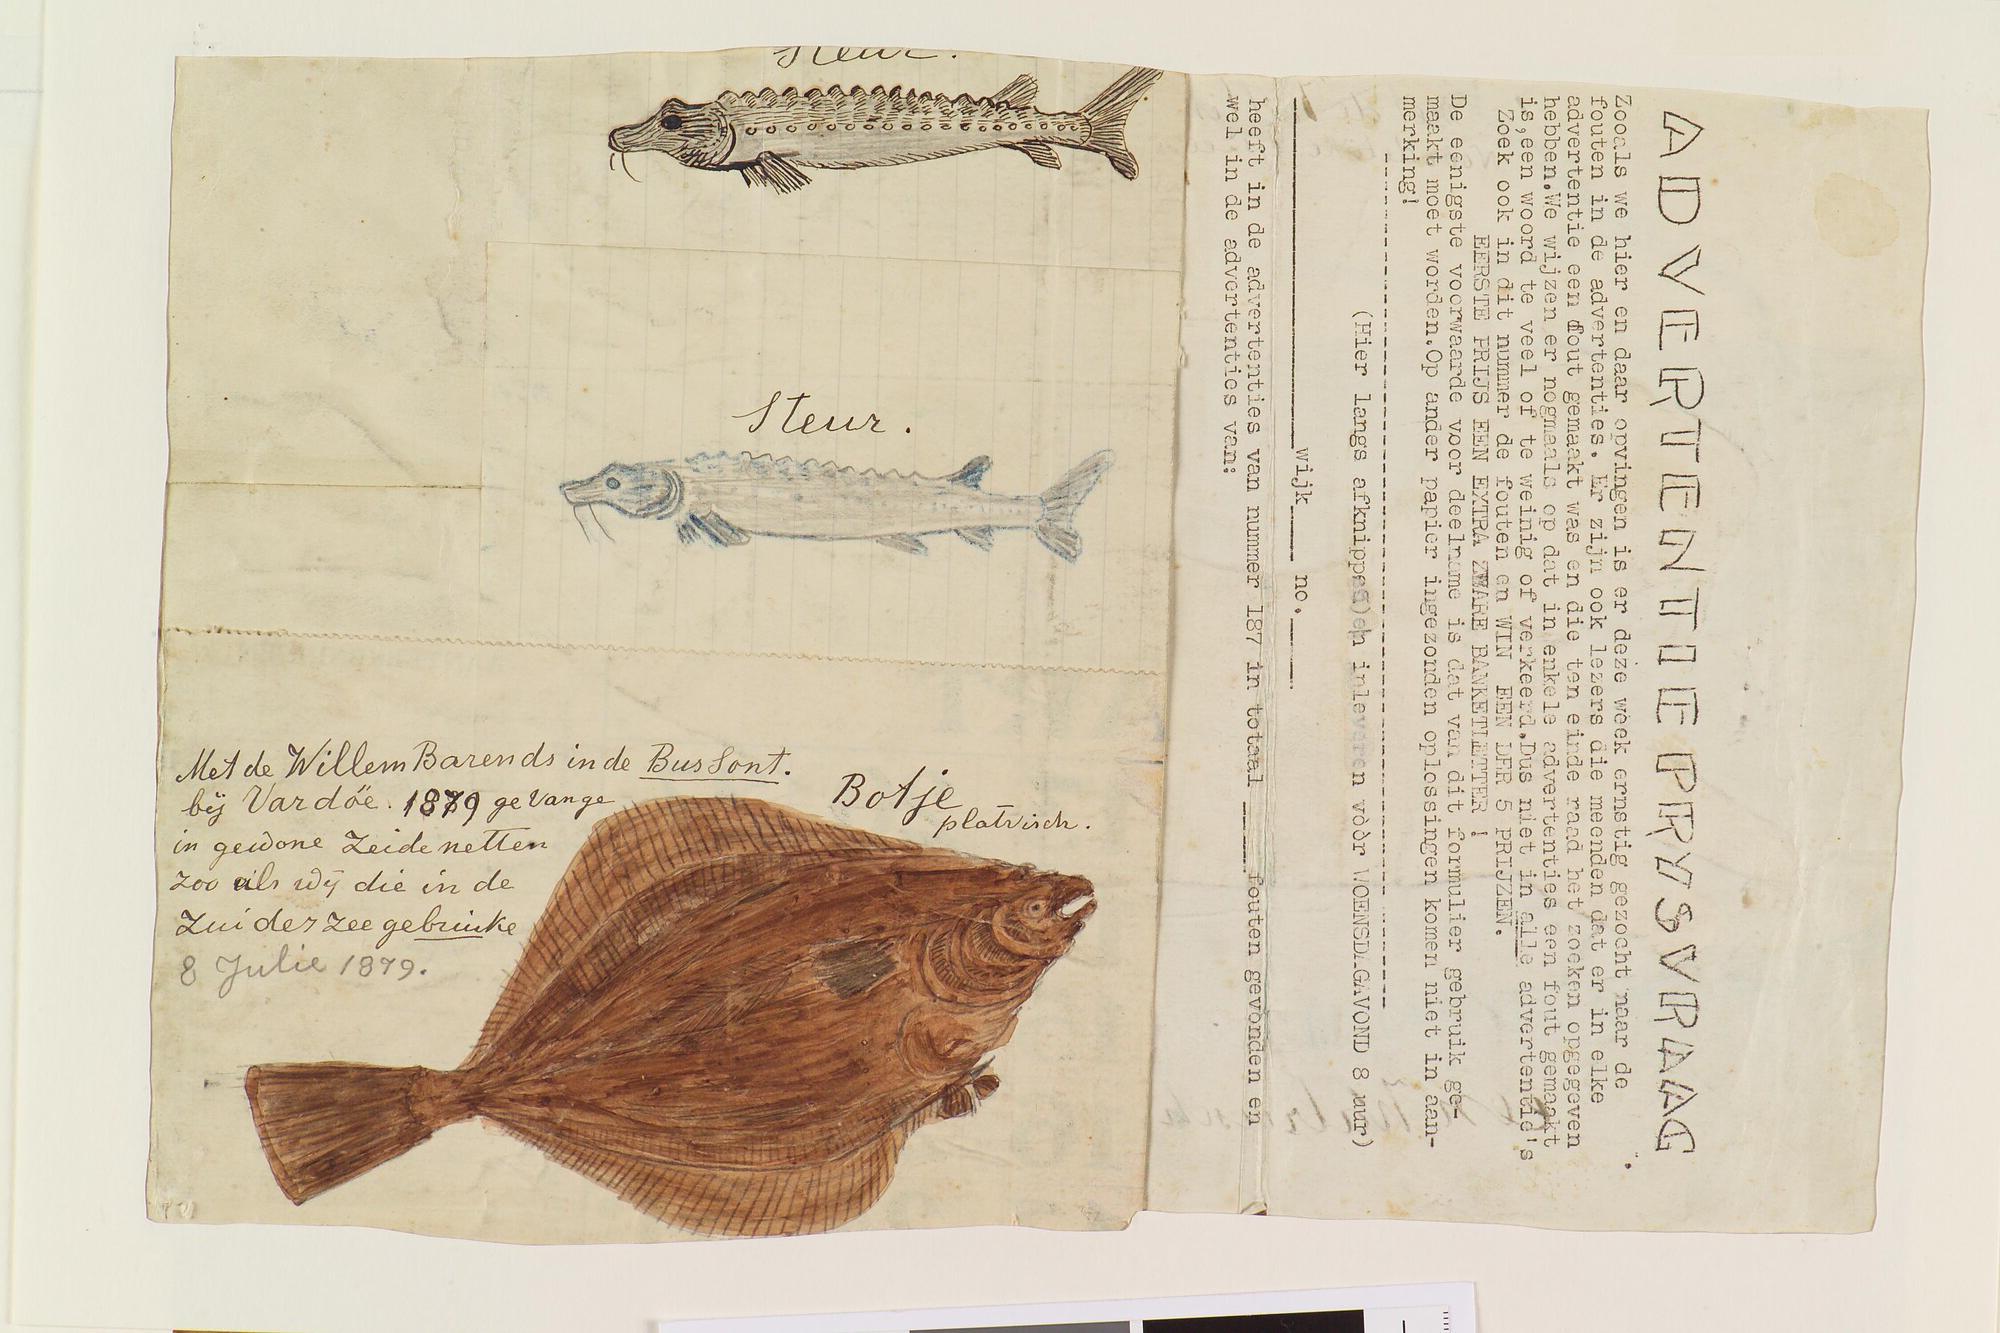 Steur.
Steur.
Met de Willem Barends in de Bussont.
bÿ Vardöe. 1879 gevange
in gewone Zeidenetten
zoo als wÿ die in de
Zuiderzee gebruike
8 Julie 1879.
Botje
platvisch.
ADVERTENTIEPRYSVRAAG
Zooals we hier en daar opvingen is er deze week ernstig gezocht naar de
fouten in de advertenties. Er zijn ook lezers die meenden dat er in elke
advertentie een fout gemaakt was en die ten einde raad het zoeken opgegeven
hebben.We wijzen er nogmaals op dat in enkele advertenties een fout gemaakt
is,een woord te veel of te weinig of verkeerd.Dus niet in alle advertentie's
Zoek ook in dit nummer de fouten en WIN EEN DER 5 PRIJZEN.
EERSTE PRIJS EEN EXTRA ZWARE BANKETLETTER !
De eenigste voorwaarde voor deelname is dat van dit formulier gebruik ge-
maakt moet worden.Op ander papier ingezonden oplossingen komen niet in aan-
merking!
(Hier langs afknippen en inleveren vòòr WOENSDAGAVOND 8 uur)
wijk____ no.____
heeft in de advertenties van nummer 187 in totaal ____ fouten gevonden en
wel in de advertenties van: